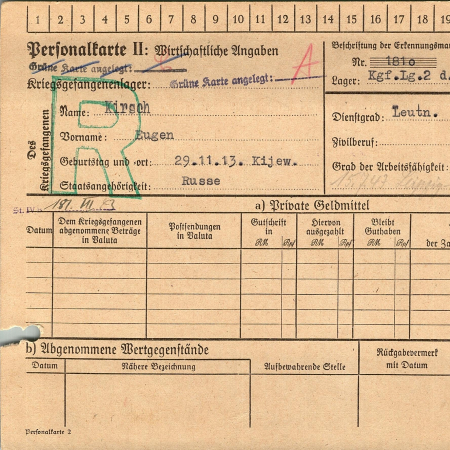 1 2 3 4 5 6 7 8 9 10 11 12 13 14 15 16 17 18 19
Personalkarte II: Wirtschaftliche Angaben
Beschriftung der Erkennungsma
Grüne Karte angelegt:
Nr. 1810
Kriegsgefangenenlager: Grüne Karte angelegt: A
Lager: Kgf.Lg.2 d.
R
Des Kriegsgefangenen
Name: Kirsch
Dienstgrad: Leutn.
Vorname: Eugen
Zivilberuf:
Geburtstag und -ort: 29.11.13. Kijew.
Grad der Arbeitsfähigkeit:
Staatsangehörigkeit: Russe
a) Private Geldmittel
Datum
Dem Kriegsgefangenen abgenommene Beträge in Valuta
Postsendungen in Valuta
Gutschrift in
RM Rpf
Hiervon ausgezahlt
RM Rpf
Bleibt Guthaben
RM Rpf
der Za
b) Abgenommene Wertgegenstände
Rückgabevermerk mit Datum
Datum
Nähere Bezeichnung
Aufbewahrende Stelle
Personalkarte 2